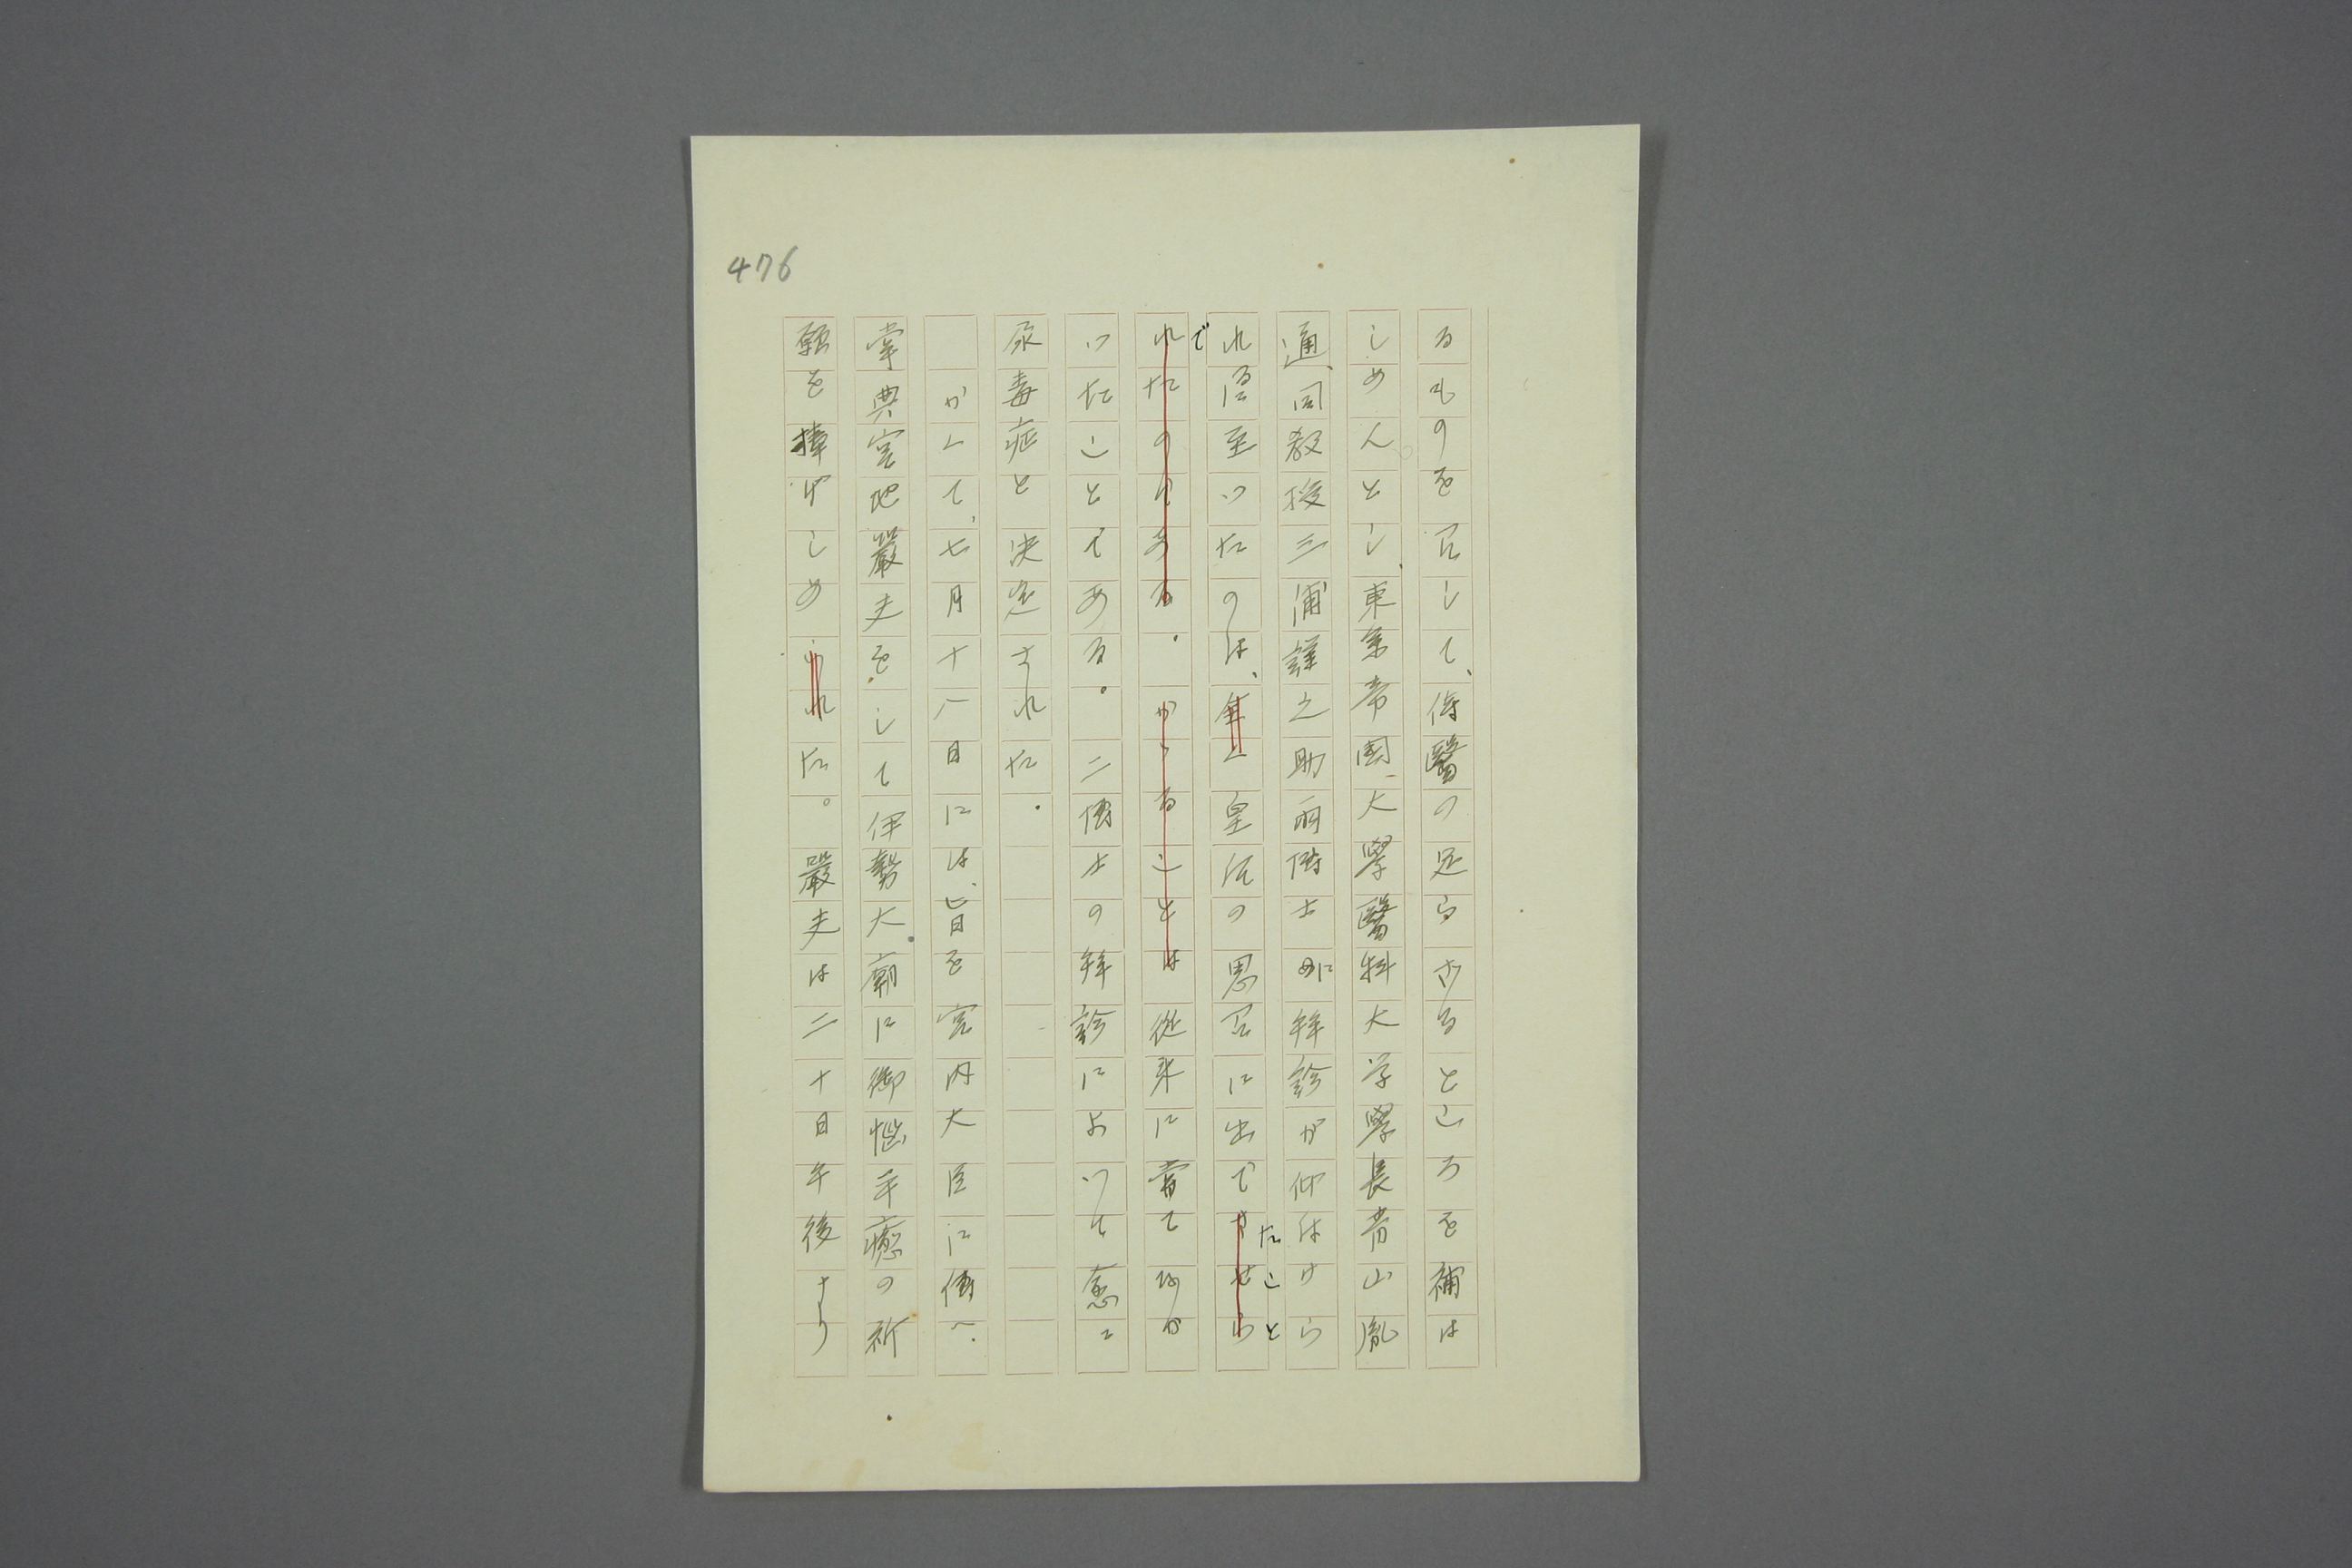 476
るものを召して、侍醫の足らざるところを補は
しめんとし、東京帝国大學醫科大学學長青山胤
通、同教授三浦謹之助両博士に拜診が仰付けら
れるに至つたのは、皇后の思召に出でたこと
で。従来に嘗てなか
つたことである。二博士の拜診によつて愈々
尿毒症と決定された。
かくて、七月十八日には、旨を宮内大臣に傳へ、
掌典宮地嚴夫をして伊勢大廟に御悩平癒の祈
願を捧げしめた。嚴夫は二十日午後より